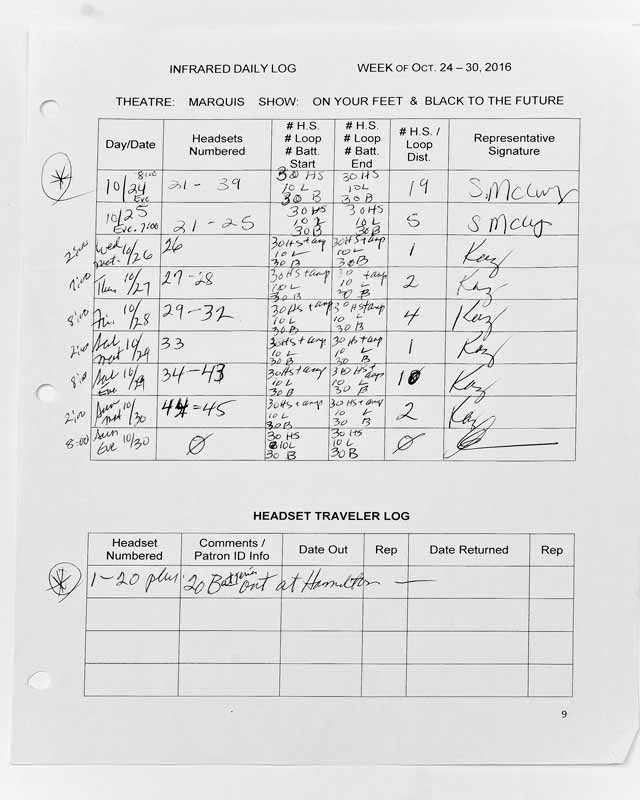 INFRARED DAILY LOG WEEK OF OCT. 24 – 30, 2016
THEATRE: MARQUIS SHOW: ON YOUR FEET & BLACK TO THE FUTURE
Day/Date Headsets Numbered # H.S. # Loop # Batt. Start # H.S. # Loop # Batt. End # H.S. / Loop Dist. Representative Signature
8:00 10/24 Eve 21 - 39 30 HS 10 L 30 B 30 HS 10 L 30 B 19
10/25 Eve. 7:00 21 - 25 30 HS 10 L 30 B 30 HS 10 L 30 B 5
2:00 Wed 10/26 Mat. 26 30 HS + amp 10 L 30 B 30 HS + amp 10 L 30 B 1 Kay
7:00 Thu 10/27 27-28 30 HS + amp 10 L 30 B 30 + amp 10 L 30 B 2 Kay
8:00 Fri. 10/28 29-32 30 HS + amp 10 L 30 B 30 HS + amp 10 L 30 B 4 Kay
2:00 Sat Mat 10/29 33 30 HS + amp 10 L 30 B 30 HS + amp 10 L 30 B 1 Kay
8:00 Sat Eve 10/29 34-43 30 HS + amp 10 L 30 B 30 HS + amp 10 L 30 B 10 Kay
2:00 Sun Mat 10/30 44-45 30 HS + amp 10 L 30 B 30 HS + amp 10 L 30 B 2 Kay
8:00 Sun Eve 10/30 Ø 30 HS 10L 30 B 30 HS 10 L 30 B Ø
HEADSET TRAVELER LOG
Headset Numbered Comments / Patron ID Info Date Out Rep Date Returned Rep
1-20 plus 20 Batteries out at Hamilton —
9